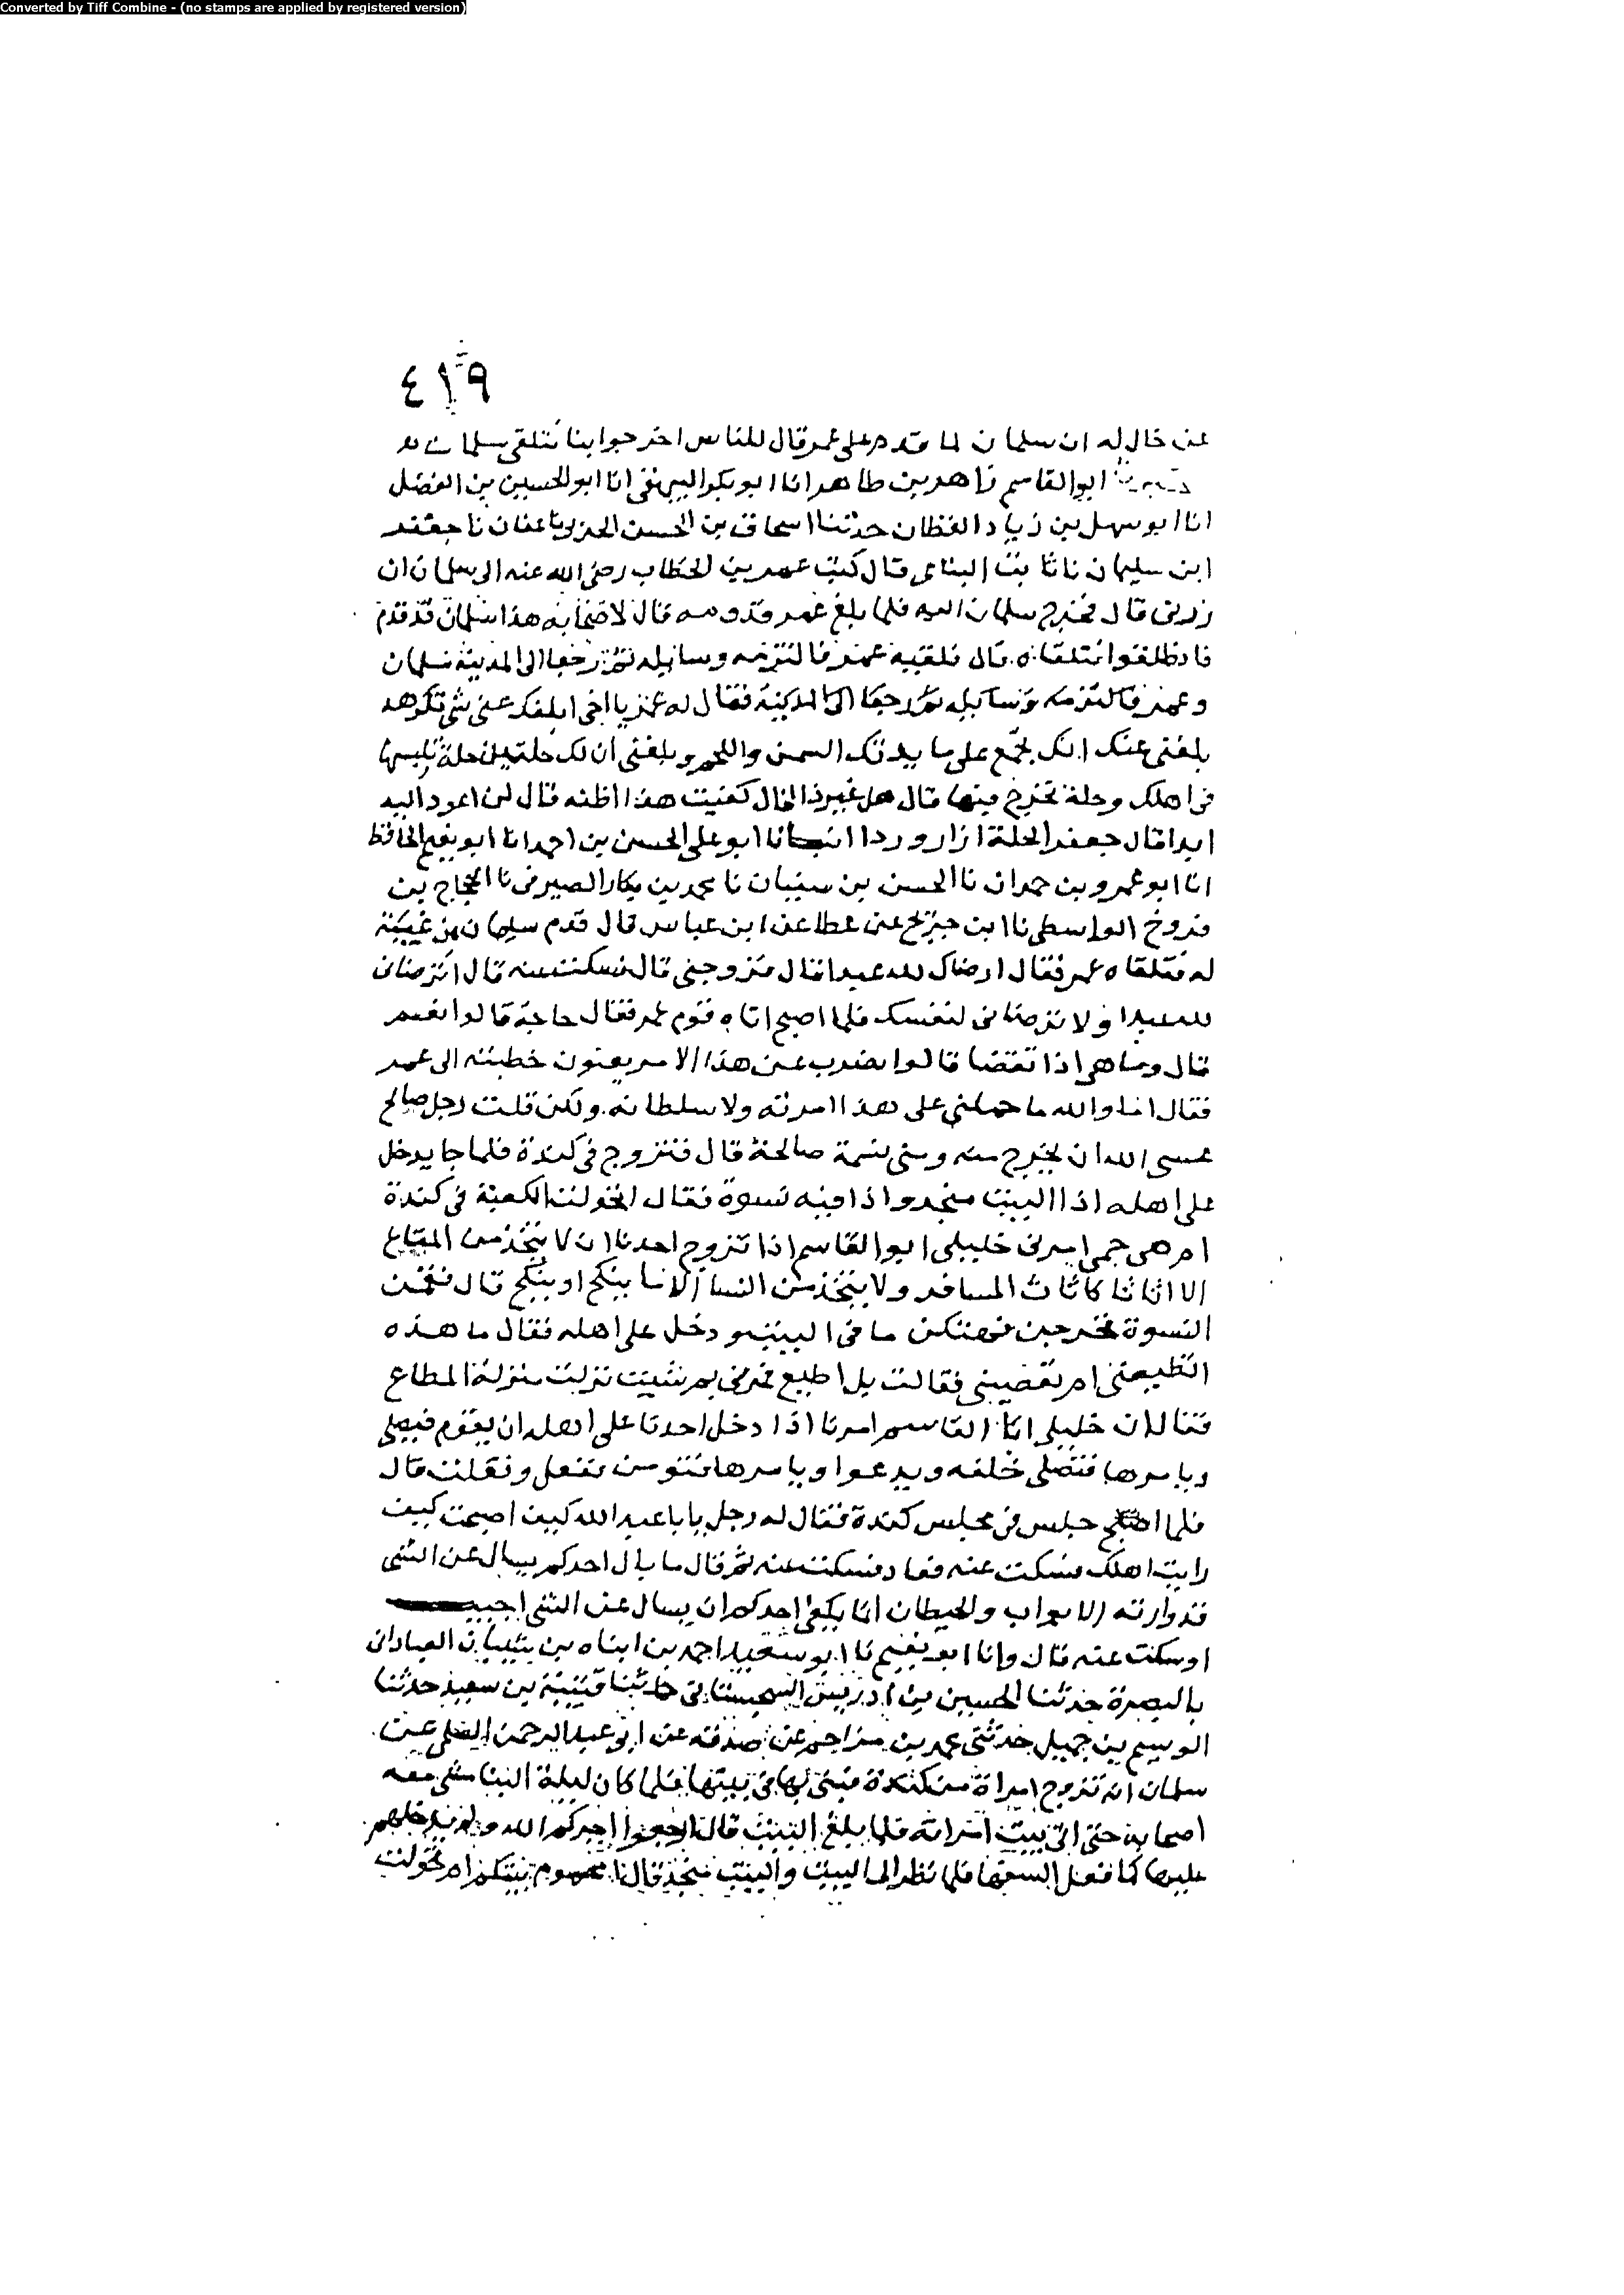 Converted by Tiff Combine - (no stamps are applied by registered version)
٤١٩
عن خال له ان سلمان لما قدم على عمر قال للناس اخرجوا بنا نتلقى سلمان
ابو القاسم زاهر بن طاهر انا ابو بكر البيهقى انا ابو الحسين بن الفضل
انا ابو سهل بن زياد القطان حدثنا اسحاق بن الحسن الحربى نا عفان نا جعفر
ابن سليمان نا ثابت البنانى قال كتب عمر بن الخطاب رضى الله عنه الى سلمان ان
زرنى قال فخرج سلمان اليه فلما بلغ عمر قدومه قال لاصحابه هذا سلمان قد قدم
فانطلقوا نتلقاه قال فلقيه عمر فالتزمه وسايله ثم رجعا الى المدينة سلمان
وعمر فالتزمه وسايله ثم رجعا الى المدينة فقال له عمر يا اخى ابلغك عنى شى تكرهه
بلغنى عنك انك تجمع على مايدتك السمن واللحم وبلغنى ان لك حلتين حلة تلبسها
فى اهلك وحلة تخرج فيها قال هل غير ذا قال كفيت هذا اظنه قال لن اعود اليه
ابدا قال جعفر الحلة ازار وردا انبانا ابو على الحسن بن احمد انا ابو نعيم الحافظ
انا ابو عمرو بن حمدان نا الحسن بن سفيان نا محمد بن بكار الصيرفى نا الحجاج بن
فروخ الواسطى نا ابن جريج عن عطا عن ابن عباس قال قدم سليمان من غيبة
له فتلقاه عمر فقال ارضاك لله عبدا قال فتزوجنى قال فسكت عنه قال اترضانى
لله عبدا ولا ترضانى لنفسك فلما اصبح اتاه قوم عمر فقال حاجة قالوا نعم
قال وما هى اذا تقضا قالوا تضرب عن هذا الامر يعنون خطبته الى عمر
فقال اما والله ما حملنى على هذا امرته ولا سلطانه ولكن قلت رجل صالح
عسى الله ان يخرج منه ومنى نسمة صالحة قال فتزوج فى كندة فلما جا يدخل
على اهله اذا البيت منجد واذا فيه نسوة فقال اتحولت الكعبة فى كندة
ام هى حمى امرنى خليلى ابو القاسم اذا تزوج احدنا ان لا يتخذ من المتاع
الا اثاثا كاثاث المسافر ولا يتخذ من النسا الا ما ينكح او ينكح قال فقمن
النسوة فخرجن فهتكن ما فى البيت ودخل على اهله فقال ما هذه
اتطيعنى ام تعصينى فقالت بل اطيع فمرنى بم شيت نزلت منزلة المطاع
فقال ان خليلى ابا القاسم امرنا اذا دخل احدنا على اهله ان يقوم فيصلى
ويامرها فتصلى خلفه ويدعوا ويامرها فتومن تفعل وفعلت قال
فلما اصبح جلس فى مجلس كندة فقال له رجل يابا عبد الله كيف اصبحت كيف
رايت اهلك فسكت عنه فعاد فسكت عنه ثم قال ما بال احدكم يسال عن الشى
قد وارته الابواب والحيطان انما يكفى احدكم ان يسال عن الشى اجيب
او سكت عنه قال وانا ابو نعيم نا ابو سعيد احمد بن ابناه بن شيبان العبادانى
بالبصرة حدثنا الحسين بن ادريس السجستانى حدثنا قتيبة بن سعيد حدثنا
الوسيم بن جميل حدثنى محمد بن مزاحم عن صدقة عن ابى عبد الرحمن السلمى عن
سلمان انه تزوج امراة من كندة فبنى بها فى بيتها فلما كان ليلة البنا مشى معه
اصحابه حتى اتى بيت امراته فلما بلغ البيت قال ارجعوا اجركم الله ولم يدخلهم
عليها كما فعل السفها فلما نظر الى البيت والبيت منجد قال محموم بيتكم ام تحولت